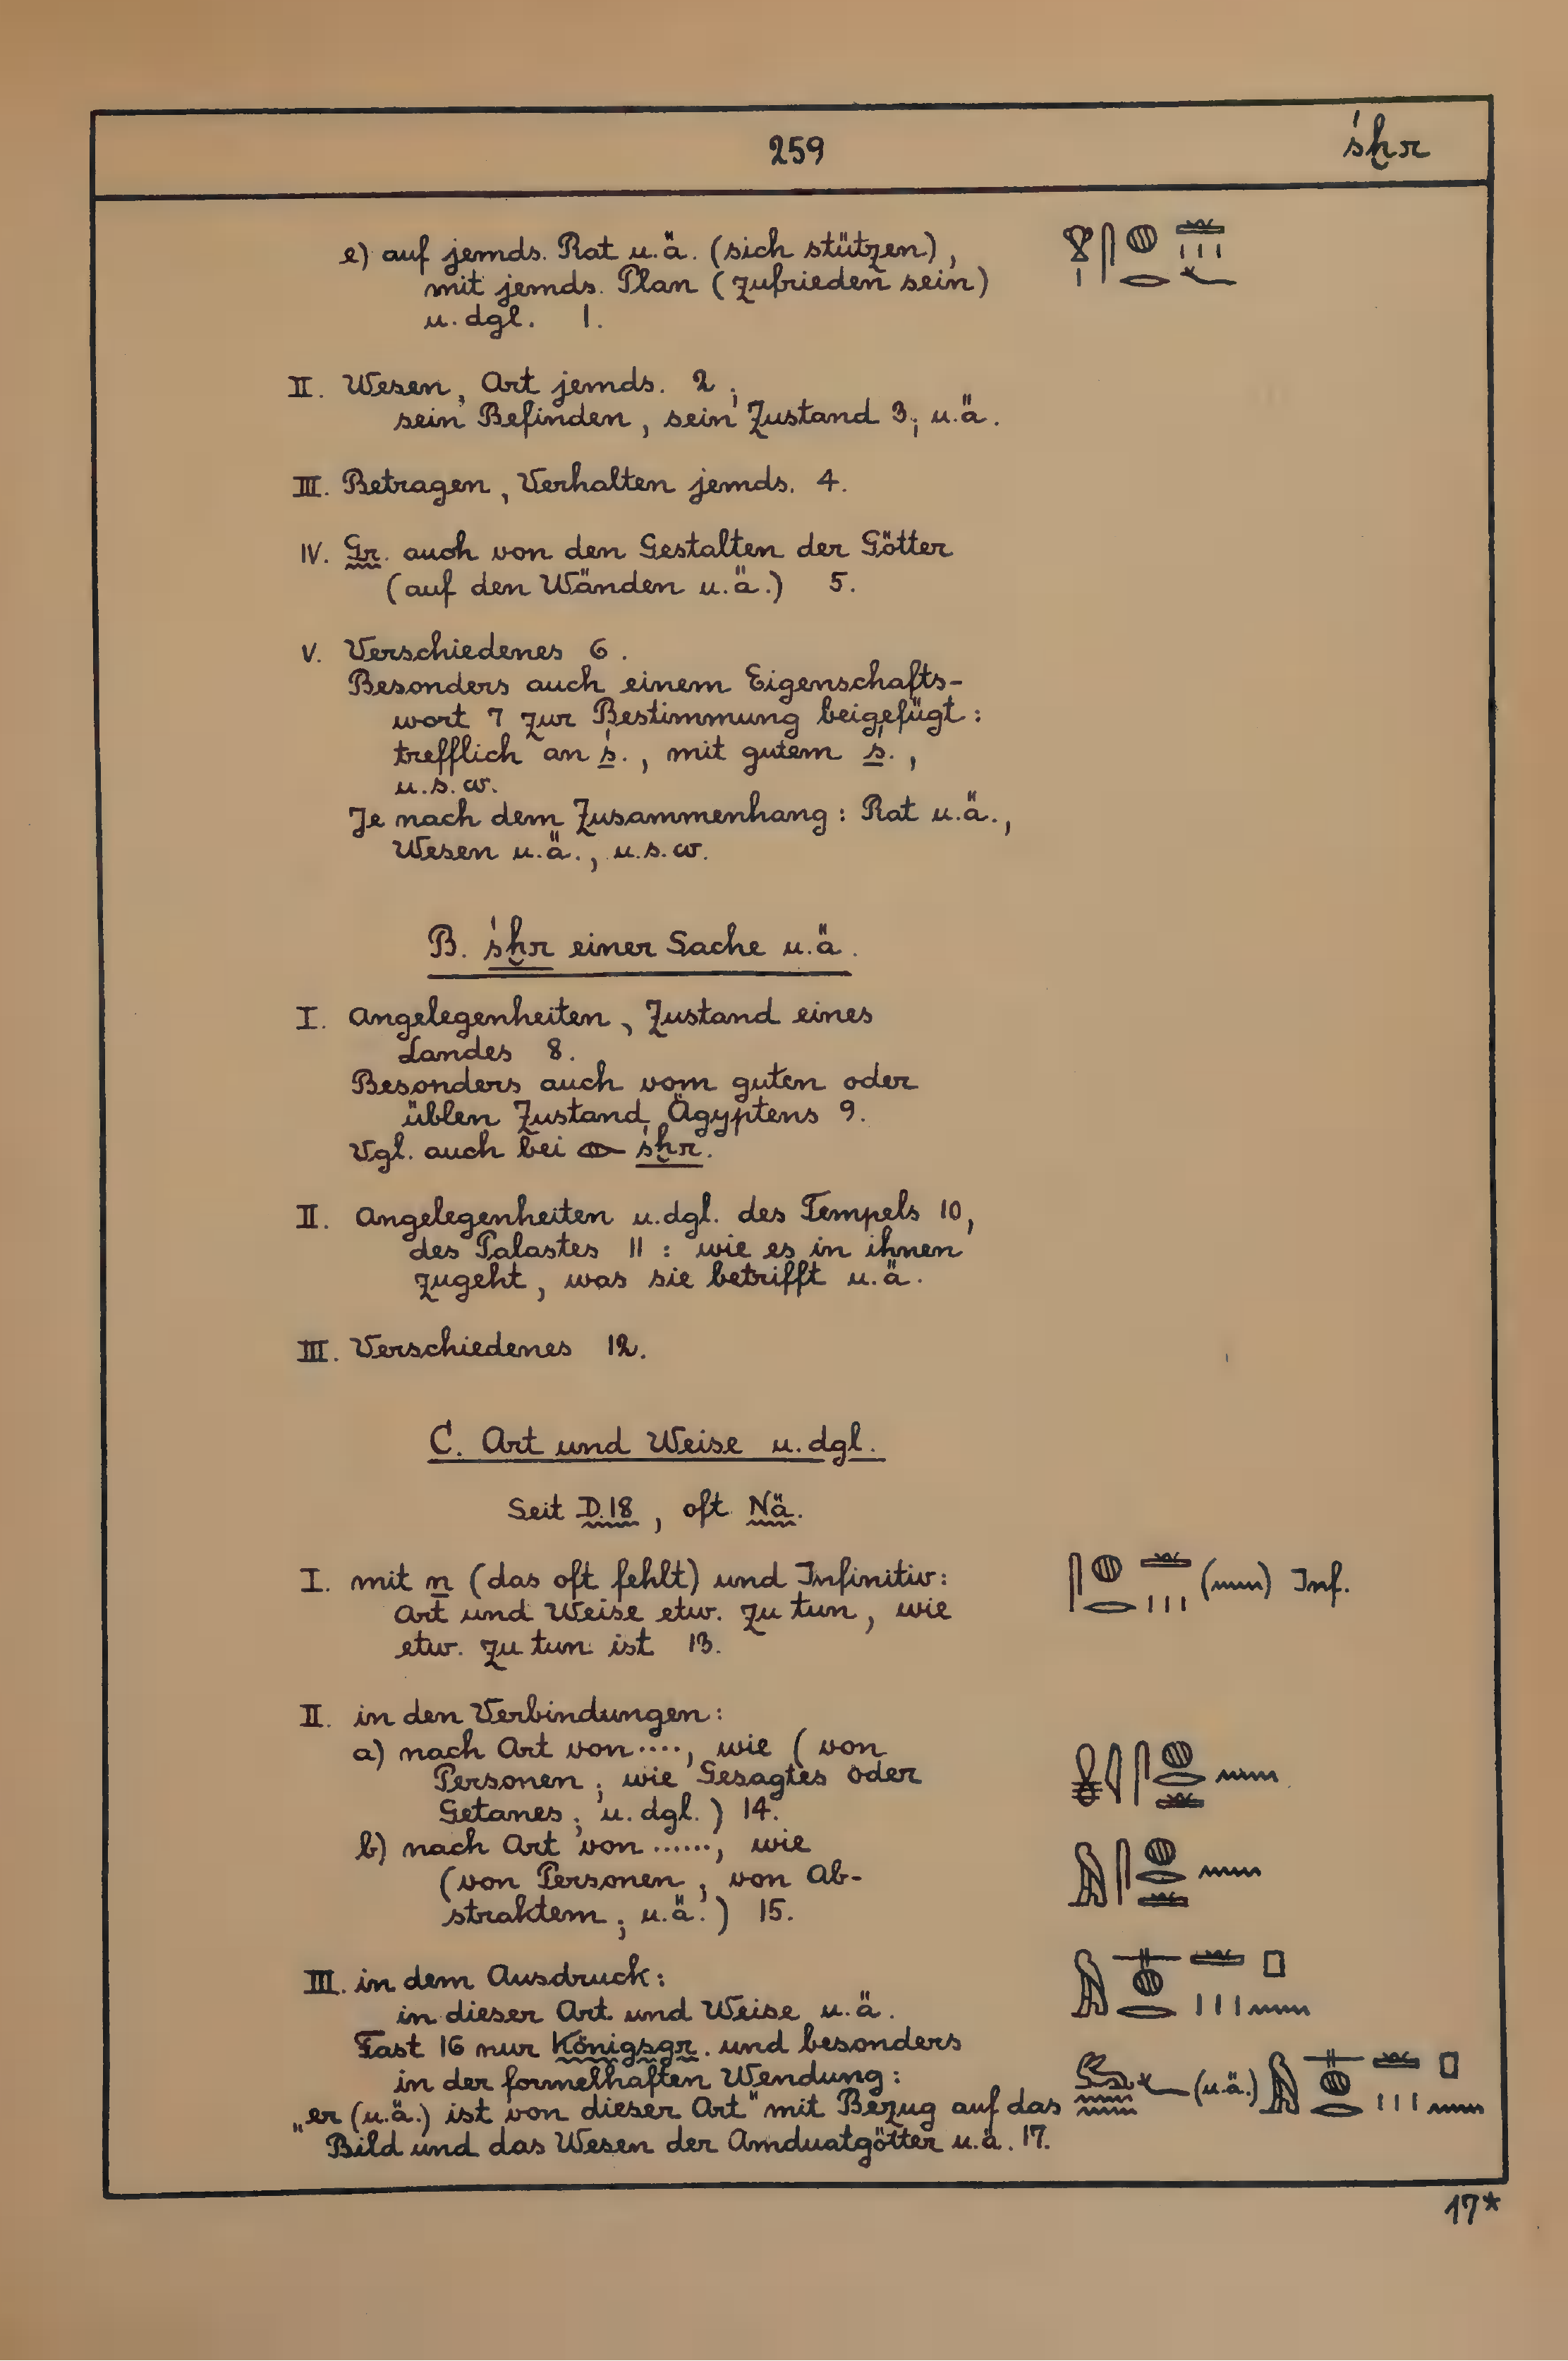 259
śḫr
e) auf jemds. Rat u.ä. (sich stützen),
mit jemds. Plan (zufrieden sein)
u. dgl. 1.
II. Wesen, Art jemds. 2;
sein Befinden, sein Zustand 3; u.ä.
III. Betragen, Verhalten jemds. 4.
IV. Gr. auch von den Gestalten der Götter
(auf den Wänden u.ä.) 5.
V. Verschiedenes 6.
Besonders auch einem Eigenschafts-
wort 7 zur Bestimmung beigefügt:
trefflich an ś., mit gutem ś.,
u.s.w.
Je nach dem Zusammenhang: Rat u.ä.,
Wesen u.ä., u.s.w.
B. śḫr einer Sache u.ä.
I. Angelegenheiten, Zustand eines
Landes 8.
Besonders auch vom guten oder
üblen Zustand Ägyptens 9.
Vgl. auch bei 𓁹 śḫr.
II. Angelegenheiten u.dgl. des Tempels 10,
des Palastes 11: wie es in ihnen
zugeht, was sie betrifft u.ä.
III. Verschiedenes 12.
C. Art und Weise u.dgl.
Seit D.18, oft Nä.
I. mit n (das oft fehlt) und Infinitiv:
Art und Weise etw. zu tun, wie
etw. zu tun ist 13.
(𓈖) Inf.
II. in den Verbindungen:
a) nach Art von ...., wie (von
Personen; wie Gesagtes oder
Getanes; u. dgl.) 14.
b) nach Art von ......, wie
(von Personen; von Ab-
straktem; u.ä.) 15.
III. in dem Ausdruck:
in dieser Art und Weise u.ä.
Fast 16 nur Königsgr. und besonders
in der formelhaften Wendung:
„er (u.ä.) ist von dieser Art" mit Bezug auf das
(u.ä.)
Bild und das Wesen der Amduatgötter u.ä. 17.
17*